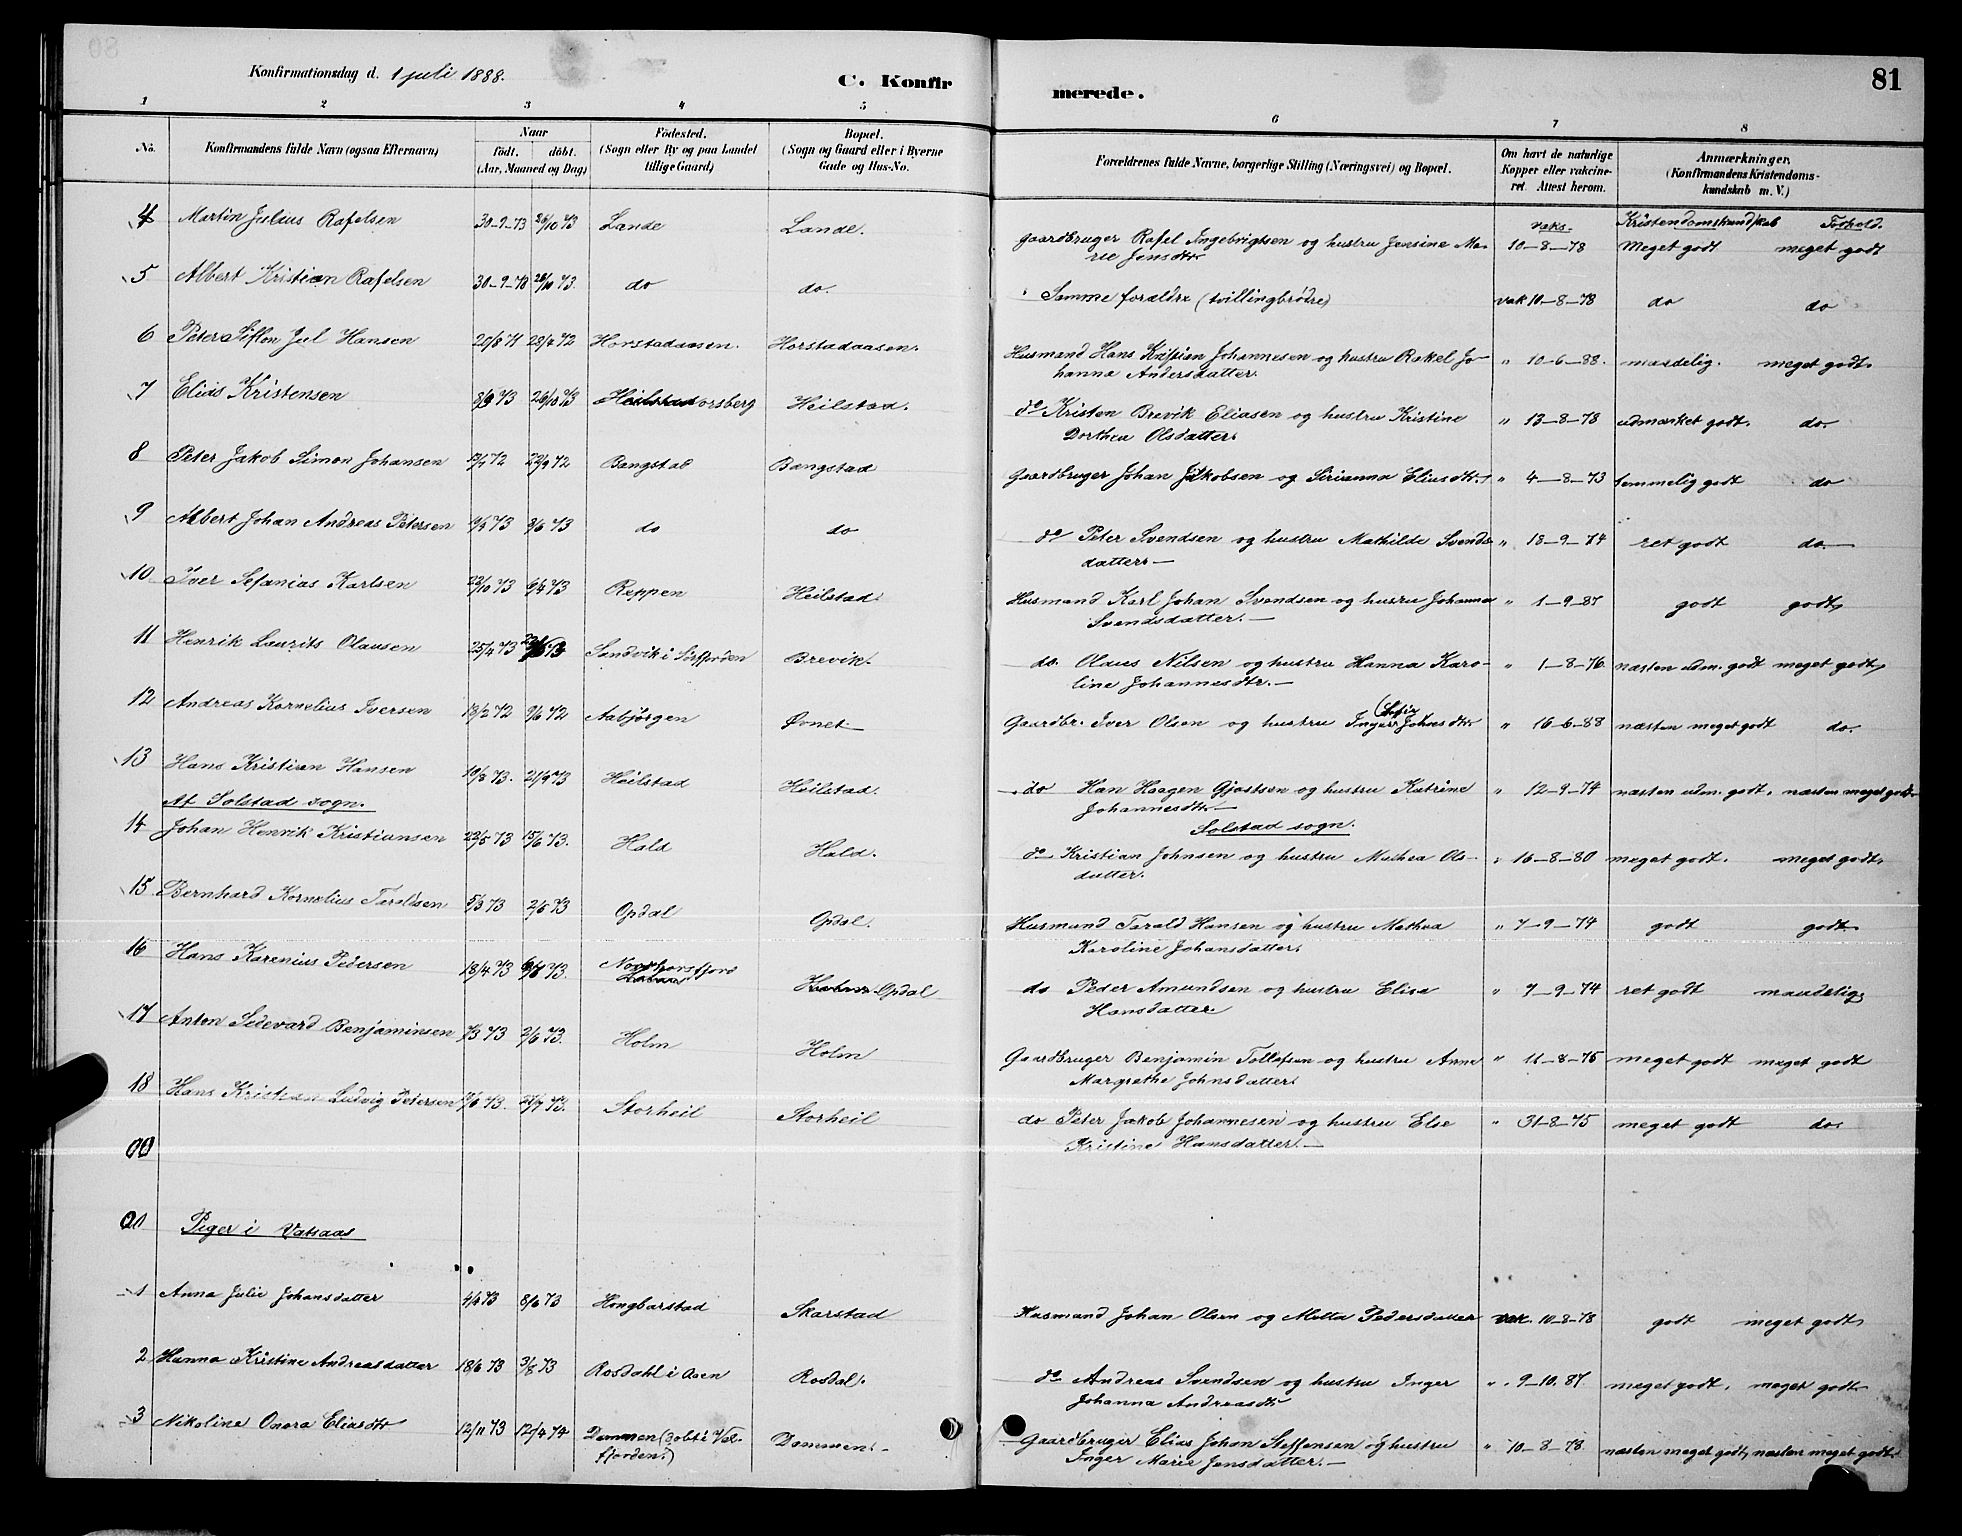 81
Konfirmationsdag d. 1 juli 1888.
C. Konfirmerede.
1 2 3 4 5 6 7 8
No.
Konfirmandens fulde Navn (ogsaa Efternavn)
Naar
födt. döbt.
(Aar, Maaned og Dag)
Födested.
(Sogn eller By og paa Landet
tillige Gaard)
Bopæl.
(Sogn og Gaard eller i Byerne
Gade og Hus-No.
Forældrenes fulde Navne, borgerlige Stilling (Næringsvei) og Bopæl.
Om havt de naturlige
Kopper eller vakcine-
ret. Attest herom.
Anmærkninger.
(Konfirmandens Kristendoms-
kundskab m. V.)
vaks. Kristendomskundskab Forhold.
4 Martin Julius Rafelsen 30-9-73 26/10 73 Lande Lande. Gaardbruger Rafel Ingebrigtsen og hustru Jensine Ma- 10-8-78 Meget godt meget godt
rie Jensdtr.
5 Albert Kristian Rafelsen 30-9-73 26/10 73. do do. Samme forældre (tvillingbrødre) vak 10-8-78 do do
6 Peter Jul Hansen 20/8 71 28/4 72 Horstadaasen. Horstadaasen. Husmand Hans Kristian Johannesen og hustru Rakel Jo- " 10-6-88. maadelig. meget godt.
hanna Andersdatter.
7 Elias Kristensen 8/9 73 26/10 73 Heilstad Heilstad. do Kristen Brevik Eliasen og hustru Kristine " 13-8-78 udmærket godt. do.
Dorthea Olsdatter.
8 Peter Jakob Simon Johansen 12/7 72 22/9 72 Bangstad Bangstad Gaardbruger Johan Jakobsen og Sirianna Eliasdtr. " 4-8-73 temmelig godt do
9 Albert Johan Andreas Petersen 19/3 73 8/6 73 do do do Peter Svendsen og hustru Mathilde Svends- " 18-9-74 ret godt do.
datter.
10 Iver Sefanias Karlsen 22/10 73 6/4 73 Reppen Heilstad. Husmand Karl Johan Svendsen og hustru Johanna " 1-9-87 godt godt
Svendsdatter.
11 Henrik Laurits Olausen 25/4 73 Sandvik i Sörfjorden Brevik. do. Olaus Nilsen og hustru Hanna Karo- " 1-8-76. næsten udm. godt meget godt
line Johannesdtr.
12 Andreas Kornelius Iversen 18/2 72 9/6 72 Aabjörgen Øvnet Gaardbr. Iver Olsen og hustru Inger Johnsdtr. " 16-6-88 næsten meget godt do.
13 Hans Kristian Hansen 19/8 73. 21/9 73 Heilstad Heilstad. do Han Haagen Gjøstsen og hustru Katrine " 12-9-74 næsten udm. godt. næsten meget godt
Johannesdtr.
Af Solstad sogn.
Solstad sogn.
14 Johan Henrik Kristiansen 22/5 73 15/6 73. Hald Hald. do Kristian Johnsen og hustru Mathea Ols- " 16-8-80 meget godt. meget godt.
datter.
15 Bernhard Kornelius Taraldsen 5/3 73 2/6 73 Opdal Opdal. Husmand Tarald Hansen og hustru Mathea " 7-9-74 godt godt
Karoline Johansdatter.
16 Hans Karenius Pedersen 18/4 73 Opdal do Peder Amundsen og hustru Elisa " 7-9-74 ret godt maadelig
Hansdatter.
17 Anton Sedevard Benjaminsen 7/3 73 2/6 73. Holm Holm Gaardbruger Benjamin Tollefsen og hustru Anna " 11-8-75 meget godt meget godt
Margrethe Johnsdatter.
18 Hans Kristian Ludvig Petersen 7/6 73. 27/7 73. Storheil Storheil do Peter Jakob Johannesen og hustru Else " 31-8-75 meget godt do.
Kristine Hansdatter.
Piger i Vatsaas
1 Anna Julie Johansdatter 4/4 73 8/6 73 Hongbarstad Skarstad Husmand Johan Olsen og Metta Pedersdatter vak. 10-8-78 godt meget godt
2 Hanna Kristine Andreasdatter 18/6 73 3/8 73 Rosdahl i Asen Rosdal. do Andreas Svendsen og hustru Inger " 9-10.87. meget godt. meget godt
Johanna Andreasdtr
3 Nikoline Onora Eliasdtr 12/11 73 12/4 74 Dammen (döbt i Vel- Dammen. Gaardbruger Elias Johan Steffensen og hustru " 10-8-78. næsten meget godt, næsten meget godt.
fjorden.) Inger Marie Jensdatter.